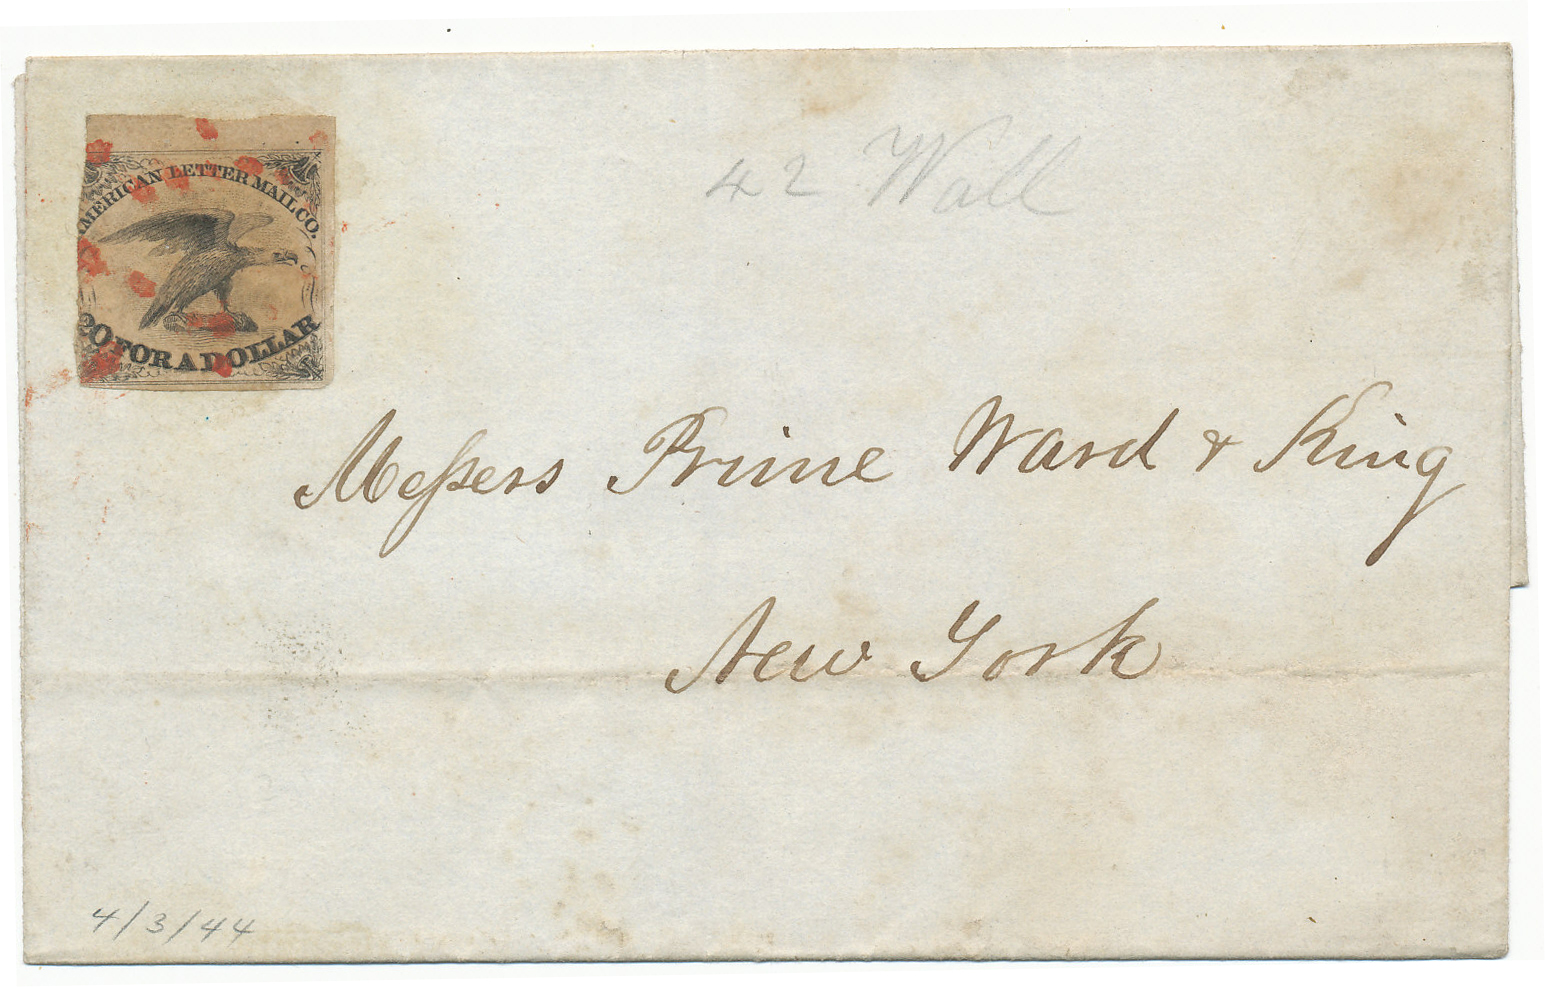 AMERICAN LETTER MAIL CO.
20 FOR A DOLLAR
42 Wall
Meſsers Prime Ward & King
New York
4/3/44